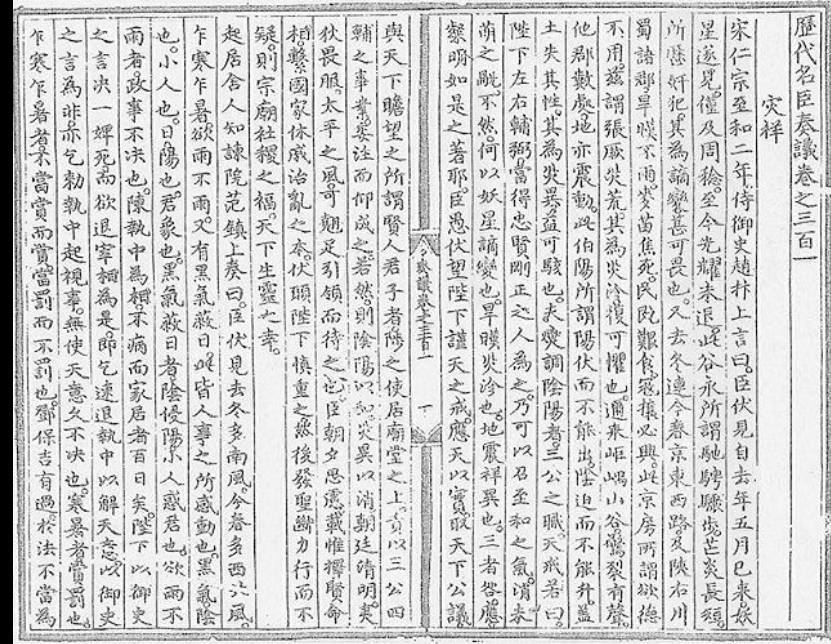 歷代名臣奏議卷之三百一
災祥
宋仁宗至和二年侍御史趙抃上言曰臣伏見自去年五月已來妖
星遂見僅及周稔至今光耀未退此谷永所謂馳騁驟步芒炎長短
所歷奸犯其為謫變甚可畏也又去冬連今春京東西路及陝右川
蜀諸郡旱暵不雨麥苗焦死民既艱食寇攘必興此京房所謂欲德
不用茲謂張厥災荒其為災沴復可懼也邇來岠嵎山谷驚裂有聲
他郡數處地亦震動此伯陽所謂陽伏而不能出陰迫而不能升蓋
土失其性其為災異益可駭也夫燮調陰陽者三公之職天戒若曰
陛下左右輔弼當得忠賢剛正之人為之乃可以召至和之氣消未
萌之眚不然何以妖星謫變也旱暵災沴也地震祥異也三者咎應
粲爾如是之著耶臣愚伏望陛下謹天之戒應天以實取天下公議
奏議卷之三百一
一
與天下瞻望之所謂賢人君子者陟之使居廟堂之上責以三公四
輔之事業委注而仰成之若然則陰陽以和災異以消朝廷清明夷
狄畏服太平之風可翹足引領而待之也臣朝夕思慮載惟擇賢命
相繫國家休戚治亂之本伏願陛下慎重之然後發聖斷力行而不
疑則宗廟社稷之福天下生靈之幸
起居舍人知諫院范鎮上奏曰臣伏見去冬多南風今春多西北風
乍寒乍暑欲雨不雨又有黑氣蔽日此皆人事之所感動也黑氣陰
也小人也日陽也君象也黑氣蔽日者陰侵陽小人惑君也欲雨不
雨者政事不決也陳執中為相不病而家居者百日矣陛下以御史
之言決一婢死而欲退宰相為是即乞速退執中以解天意以御史
之言為非亦乞勑執中起視事無使天意久不決也寒暑者賞罰也
乍寒乍暑者不當賞而賞當罰而不罰也鄧保吉有過於法不當為